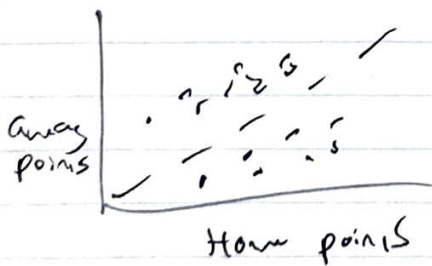 away
points
Home points